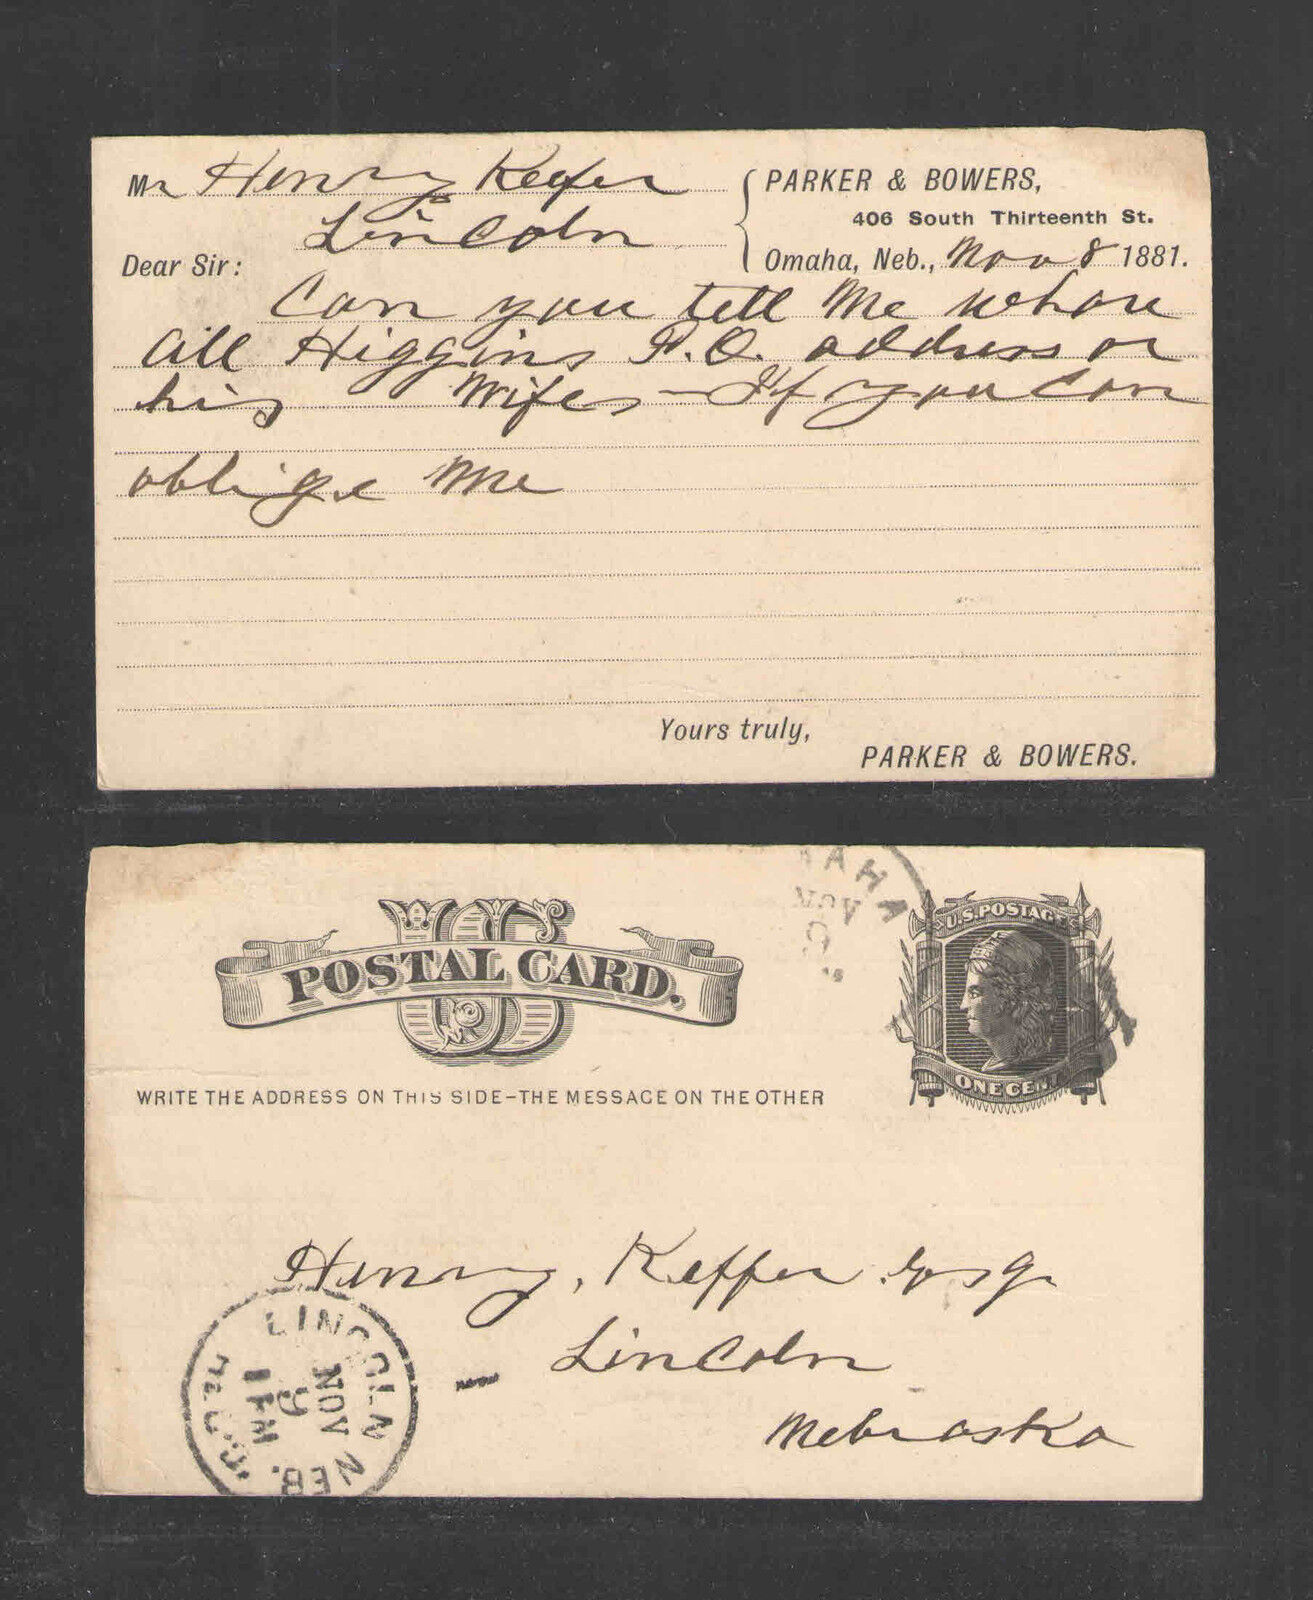 Mr Henry Keefer
Lincoln
PARKER & BOWERS,
406 South Thirteenth St.
Omaha, Neb., Nov 8 1881.
Dear Sir:
Can you tell me whare
Higgins P.O. address or
his Wifes - If you can
oblige Me
Yours truly,
PARKER & BOWERS.
US
POSTAL CARD.
WRITE THE ADDRESS ON THIS SIDE-THE MESSAGE ON THE OTHER
AHA
NOV
U.S. POSTAGE
ONE CENT
Henry, Keffer Esq
Lincoln
Nebraska
LINCOLN NEB.
NOV
9
1 PM
REC'D